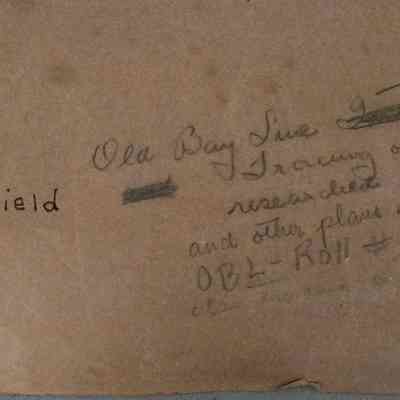 Old Bay Line
Tracing
ield
researched
and other plans
OBL - Roll #